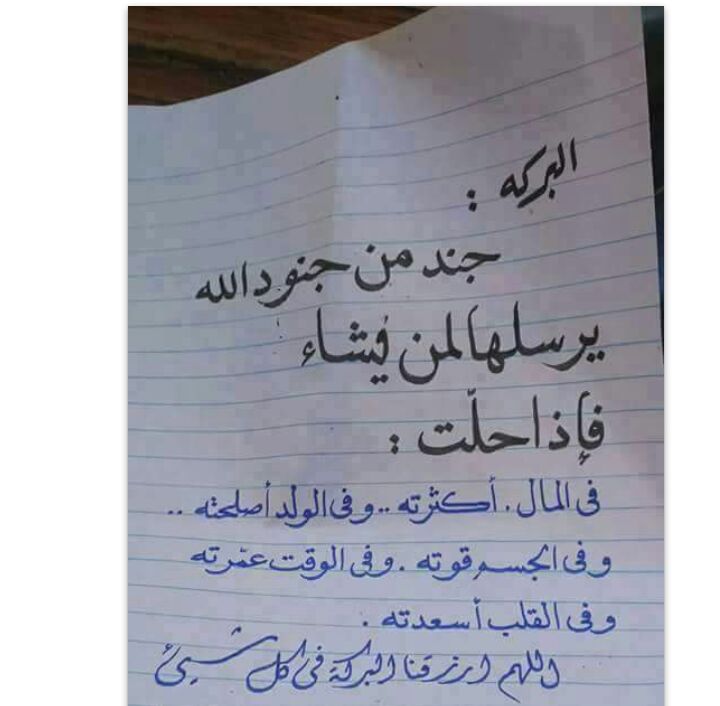 البركه :
جند من جنود الله
يرسلها لمن يشاء
فإذا حلّت :
فى المال . أكثرته .. و فى الولد أصلحته ..
و فى الجسم قوته . و فى الوقت عمّرته
و فى القلب أسعدته .
اللهم ارزقنا البركة فى كل شيئ